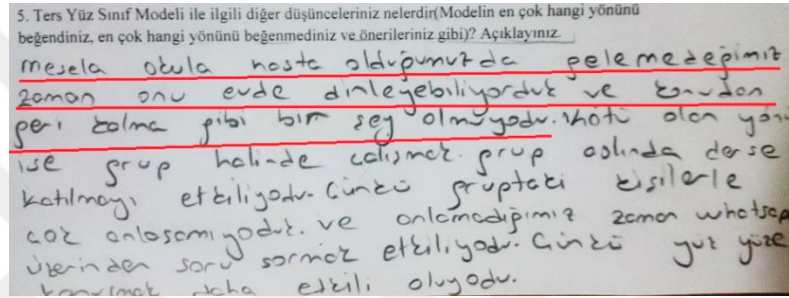 5. Ters Yüz Sınıf Modeli ile ilgili diğer düşünceleriniz nelerdir(Modelin en çok hangi yönünü
beğendiniz, en çok hangi yönünü beğenmediniz ve önerileriniz gibi)? Açıklayınız.
mesela okula hasta olduğumuzda gelemedeğimiz
zaman onu evde dinleyebiliyorduk ve konudan
geri kalma gibi bir şey olmuyodu. Kötü olan yönü
ise grup halinde çalışmak. grup aslında derse
katılmayı etkiliyodu. Çünkü gruptaki kişilerle
çok anlaşamıyoduk. ve anlamadığımız zaman whatsap
üzerinden soru sormak etkiliyodu. Çünkü yüz yüze
konuşmak daha etkili oluyodu.